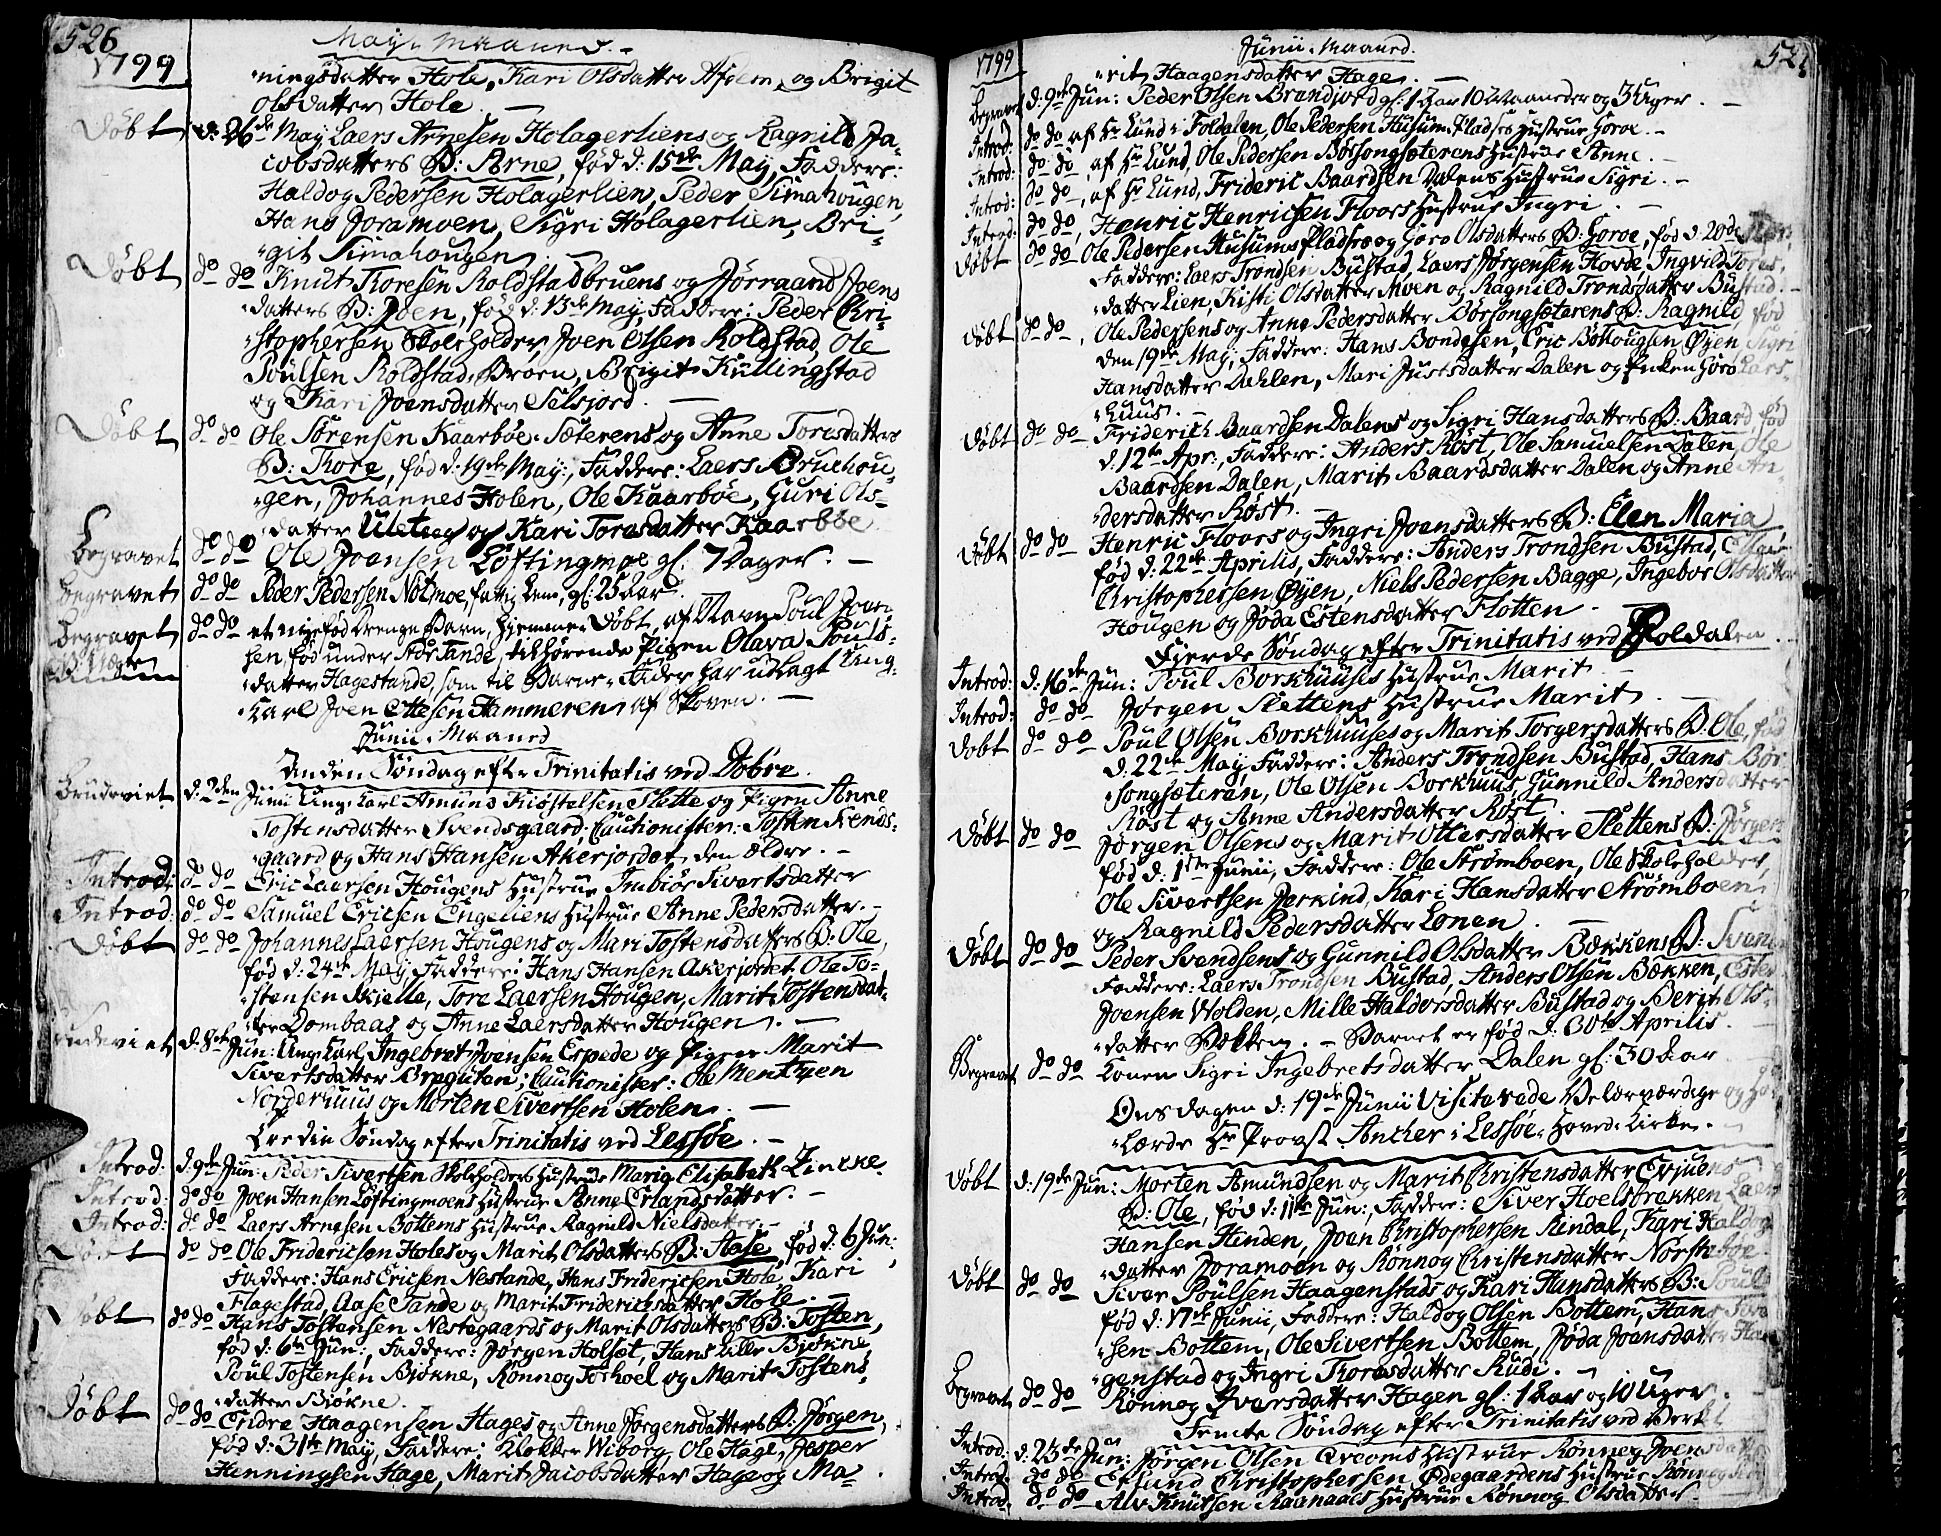 526
1799
May Maaned.
ningsdatter Hole, Kari Olsdatter og Brigit
Olsdatter Hole.
Døbt d: 26de May Laers Arnesen Holagerliens og Ragnild Ja-
cobsdatters B: Arne, fød d: 15de May, Faddere:
Haldog Pedersen Holagerlien, Peder Simahougen,
Hans Joramoen, Sigri Holagerlien, Bri-
git Simahougen.
Døbt do do Knut Toresen Roldstadbruens og Jørraand Joens
datters B: Joen, fød d: 13de May, Faddere: Peder Chri-
stophersen Skoleholder, Joen Olsen Roldstad, Ole
Poulsen Roldstad-Broen, Brigit Kullingstad
og Kari Joensdatter Selsjord.
Døbt do do Ole Sørensen Kaarbøe-Sæterens og Anne Toresdatters
B: Thore, fød d: 19de May, Faddere: Laers Bruehou-
gen, Johannes Holen, Ole Kaarbøe, Guri Ols-
datter Uleteg og Kari Toresdatter Kaarbøe
Begravet do do Ole Joensen Løftingmoe gl: 7 Dager.
Begravet do do Peder Pedersen Nolmoe, fattig Lem, gl: 25 Aar.
Begravet do do et nyefød Drenge Barn, hjemme-Døbt, af Navn Poul Joen
sen, fød under Nør Tande, tilhørende Pigen Olava Pouls-
datter Hagestande, som til Barne-Fader har udlagt Ung-
karl Joen Ottesen Hammeren af Skoven.
Junii Maaned
Anden Søndag efter Trinitatis ved Dobre.
Brudeviet d: 2den Junii Ungkarl Amund Kiøstelsen Slette og Pigen Anne
Tostensdatter Svendsgaard; Cautionister: Tosten Svends-
gaard og Hans Hansen Akerjordet den Ældre.
Introd: do do Eric Laersen Hougens Hustrue Imbiør Sivertsdatter
Introd: do do Samuel Ericsen Engeliens Hustrue Anne Pedersdatter.
Døbt do do Johannes Laersen Hougens og Mari Tostensdatters B: Ole,
fød d: 24de May, Faddere: Hans Hansen Akerjordet, Ole To-
stensen Kjelle, Tore Laersen Hougen, Marit Tostensdat-
ter Dombaas og Anne Laersdatter Hougen.
d: 8de Jun: Ungkarl Ingebret Joensen Espede og Pigen Marit
Sivertsdatter Brøguten; Cautionister: Ole Mentzen
Norderhuus og Morten Sivertsen Holen.
Tredie Søndag efter Trinitatis ved Lessøe.
Introd: d: 9de Jun: Peder Sivertsen Skoleholders Hustrue Marig Elisabeth Lincke
Introd: do do Joen Hansen Løftingmoens Hustrue Anne Erlandsdatter.
Introd: do do Laers Arnesen Bottems Hustrue Ragnild Nielsdatter.
Døbt do do Ole Fridericsen Holes og Marit Olsdatters B: Aase, fød d: 6 Jun:
Faddere: Hans Ericsen Nestande, Hans Fridericsen Hole, Kari
Flagestad, Aase Tande og Marit Friderichsdatter Hole.
Døbt do do Hans Tostensen Nestegaards og Marit Olsdatters B: Tosten,
fød d: 6te Jun:, Faddere: Jørgen Holset, Hans Lille Biøkne,
Poul Tostensen Biøkne, Rønnog Torhoel og Marit Tostens-
datter Biøkne.
Døbt do do Endre Haagensen Hages og Anne Jørgensdatters B: Jørgen,
fød d: 31te May, Faddere: Klokker Wiborg, Ole Hage, Jesper
Henningsen Hage, Marit Jacobsdatter Hage og Ma-
1799
Junii Maaned.
527
rit Haagensdatter Hage.
Begravet d: 9de Jun: Peder Olsen Brandjord gl: 1 Aar 10 Maaneder og 3 Uger.
Introd: do do af Hr Lund i Foldalen, Ole Pedersen Husums-Pladses Hustrue Goroe.
Introd: do do, af Hr Lund, Ole Pedersen Børsongsæterens Hustrue Anne.
Introd: do do, af Hr Lund, Frideric Baardsen Dalens Hustrue Sigri.
Introd: do do, Henric Henricsen Floors Hustrue Ingri.
Døbt do do Ole Pedersen Husums Pladses og Goro Olsdatters B: Goroe, fød d: 20de
Faddere: Laers Trondsen Bustad, Laers Jørgensen Hovde, Ingvild Tores-
datter Lien, Kisti Olsdatter Moen og Ragnild Trondsdatter Bustad.
Døbt do do, Ole Pedersens og Anne Pedersdatter Børsongsæterens B: Ragnild, fød
den 19de May, Faddere: Hans Bondesen, Eric Bøhougen Øyen, Sigri
Hansdatter Dahlen, Mari Justsdatter Dalen og Enken Goro Lars-
huus.
Døbt do do Friderich Baardsen Dalens og Sigri Hansdatters B: Baard, fød
d: 12te Apr:, Faddere: Anders Røst, Ole Samuelsen Dalen, Ole
Baardsen Dalen, Marit Baardsdatter Dalen og Anne An-
dersdatter Røst.
Døbt do do Henric Floors og Ingri Joensdatters B: Elen Maria
fød d: 22de Aprilis, Faddere: Anders Trondsen Bustad,
Christophersen Øyen, Niels Pedersen Bagge, Ingebor Olsdatter
Hougen og Jøda Estensdatter Flotten.
Fierde Søndag efter Trinitatis ved Foldalen.
Introd: d: 16de Jun: Poul Borkhuuses Hustrue Marit
Introd: do do Jørgen Slettens Hustrue Marit
Døbt do do Poul Olsen Borkhuuses og Marit Torgersdatters B: Ole, fød
d: 22de May, Faddere: Anders Trondsen Bustad, Hans Bør-
songsæteren, Ole Olsen Borkhuus, Gunnild Andersdatter
Røst og Anne Andersdatter Røst.
Døbt do do Jørgen Olsens og Marit Ottersdatter Slettens B: Jørgen
fød d: 1ste Junii, Faddere: Ole Strømboen, Ole Skoleholder,
Ole Sivertsen Jerkind, Kari Hansdatter Strømboen
og Ragnild Pedersdatter Lonen.
Døbt do do Peder Svendsens og Gunnild Olsdatter Bækkens B: Svend
Faddere: Laers Trondsen Bustad, Anders Olsen Bækken, Esten
Joensen Wolden, Mille Haldorsdatter Bustad og Berit Ols-
datter Bækken. - Barnet er fød d: 30te Aprilis.
Begravet do do Konen Sigri Ingebretsdatter Dalen gl: 30 Aar
Onsdagen d: 19de Junii Visiterede Velærværdige og Høi-
Lærde Hr Provst Ancher i Lessøe Hoved-Kirke.
Døbt d: 19de Jun: Morten Amundsen og Marit Christensdatter Evjuens
B: Ole, fød d: 11te Jun:, Faddere: Siver Hoelstrækken, Laers
Hansen Hinden, Joen Christophersen Rindal, Kari Haldog-
datter Joramoen og Rønnog Christensdatter Norsteboe.
Døbt do do Siver Poulsen Haagenstads og Kari Hansdatters B: Poul
fød d: 17de Junii, Faddere: Haldog Olsen Bottem, Hans
sen Bottem, Ole Sivertsen Bottem, Jøda Joensdatter Haa-
genstad og Ingri Thoresdatter Rudi.
Begravet do do Rønnog Iversdatter Hagen gl: 1 Aar og 10 Uger.
Femte Søndag efter Trinitatis ved
Introd: d: 23de Jun: Jørgen Olsen Qveoms Hustrue Rønneg Joensdatter
Introd: do do Erlund Christophersen Ødegaardens Hustrue Rønnog
Introd: do do Alv Knutsen Raanaaes Hustrue Rønnog Olsdatter